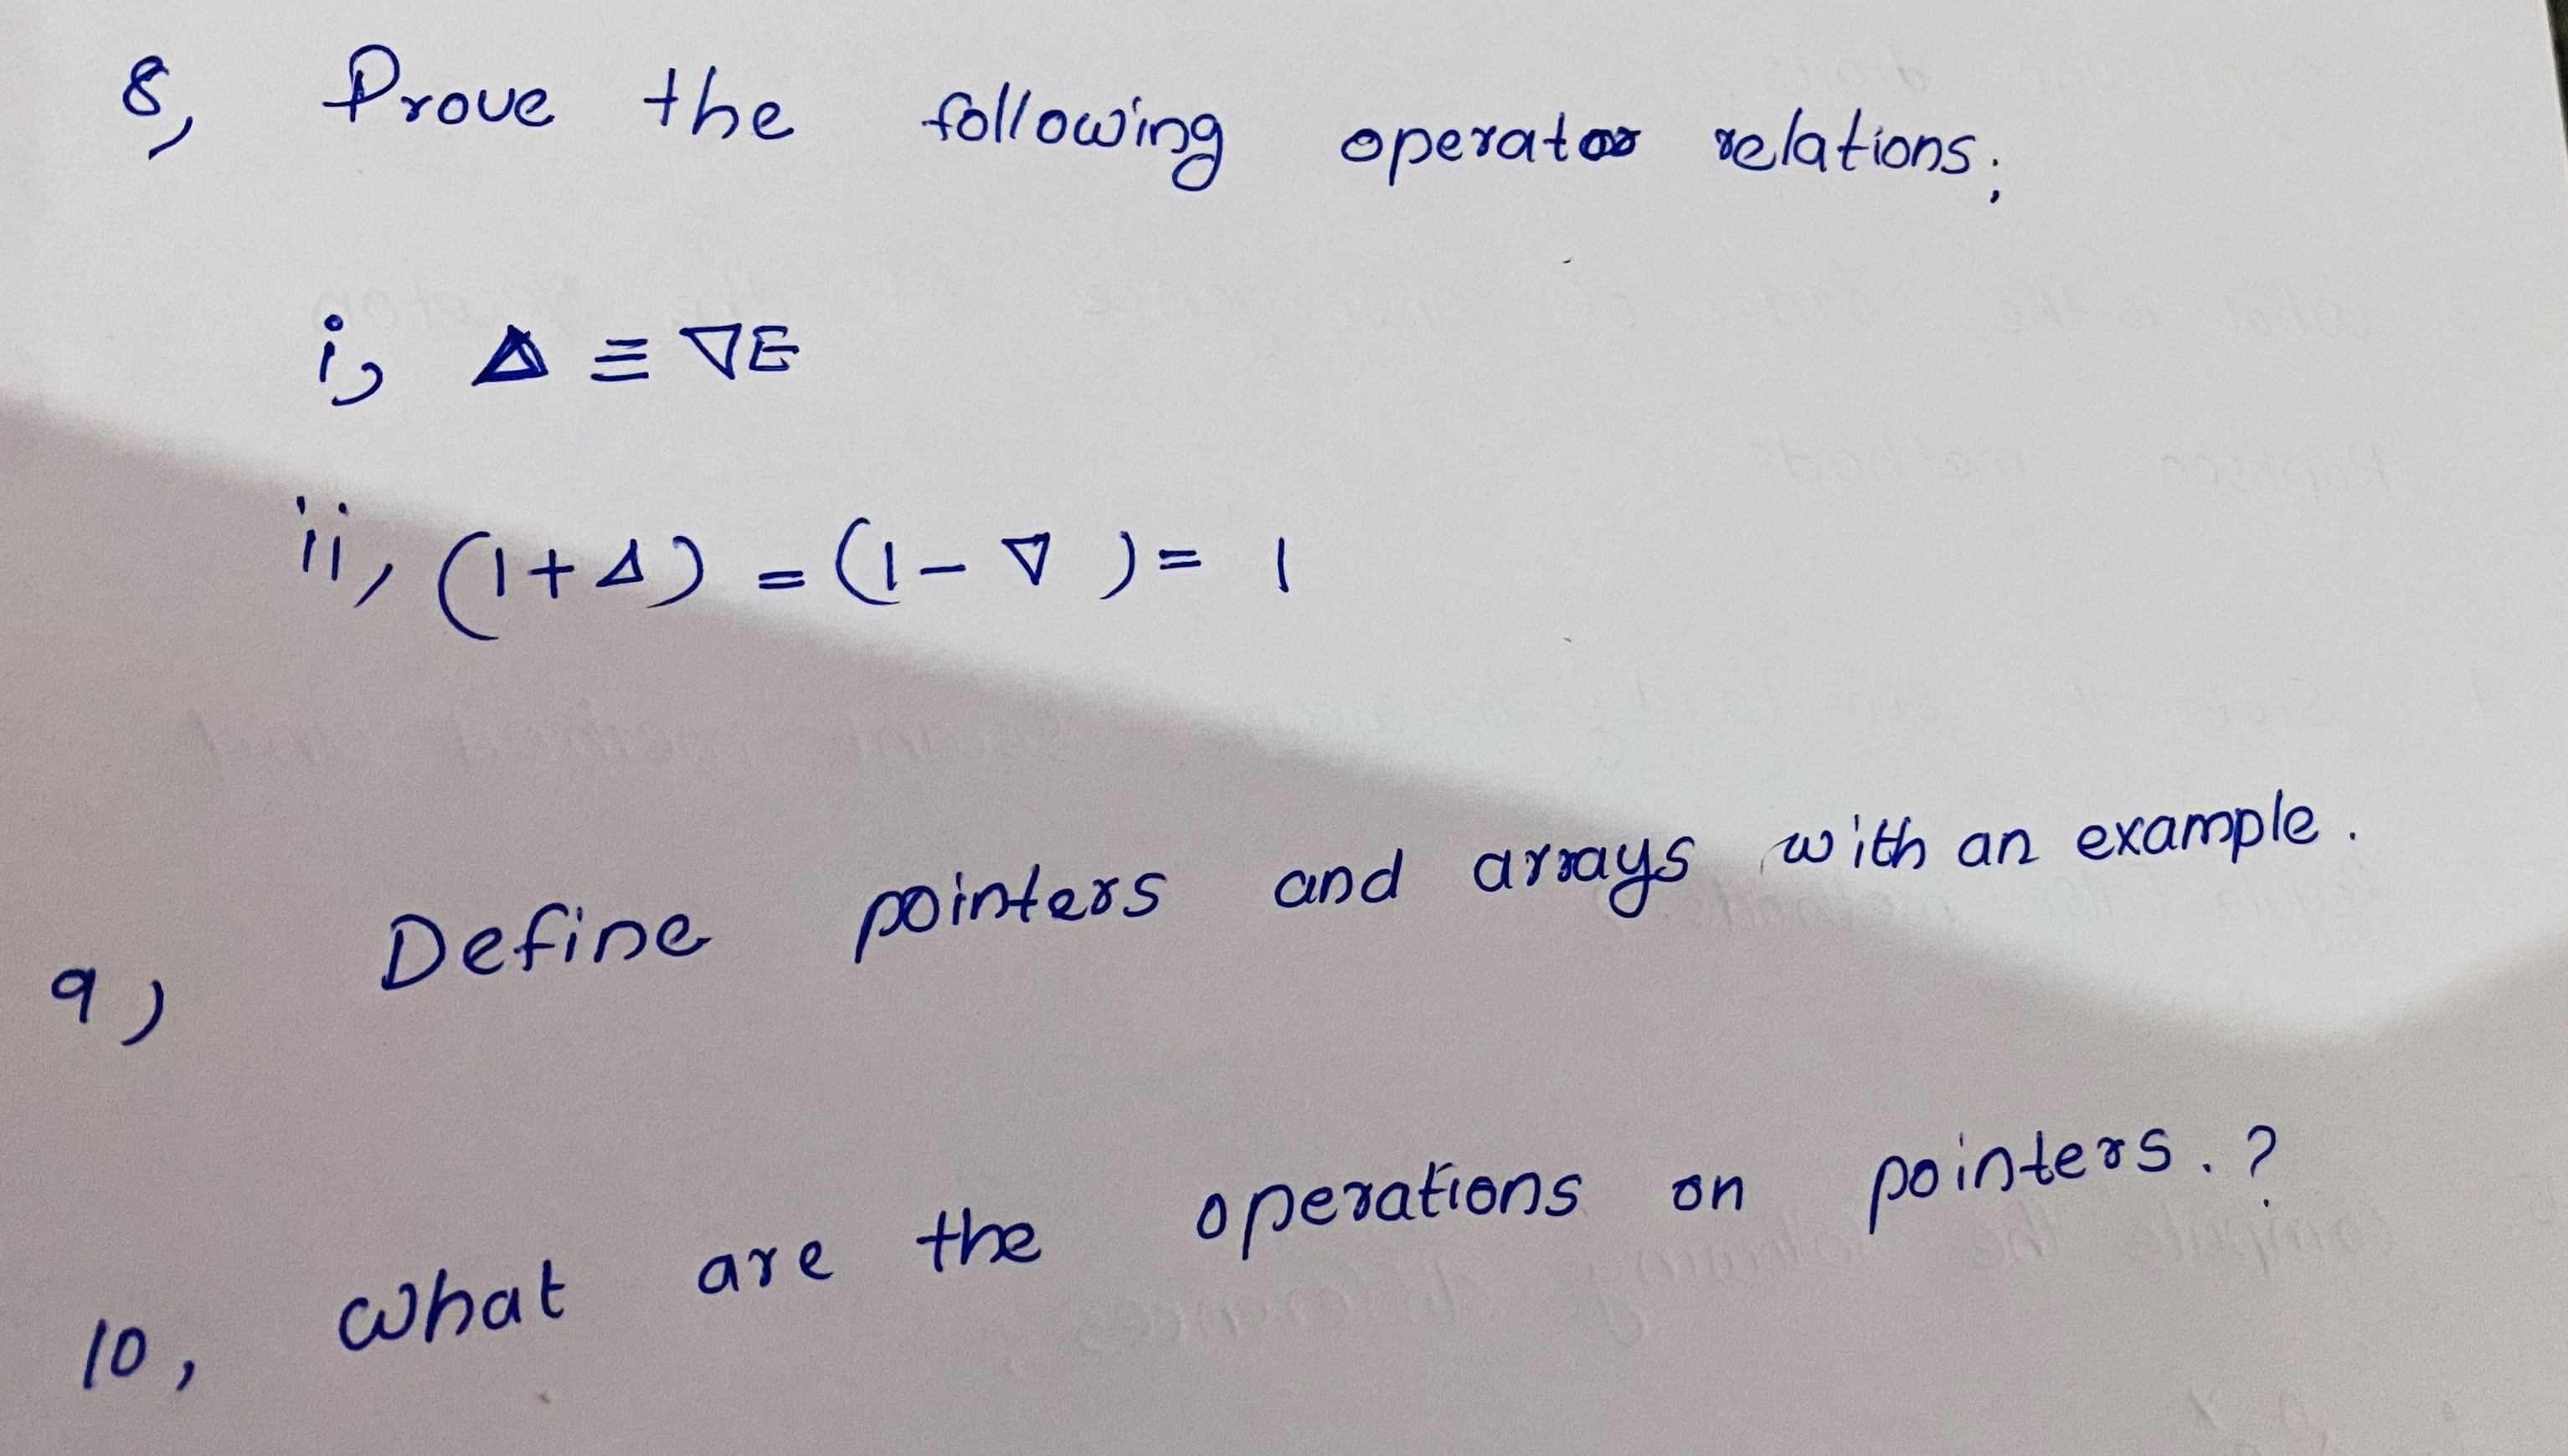 8, Prove the following operator relations;
i, Δ ≡ ∇E
ii, (1+Δ) = (1-∇) = 1
9) Define pointers and arrays with an example.
10, What are the operations on pointers.?